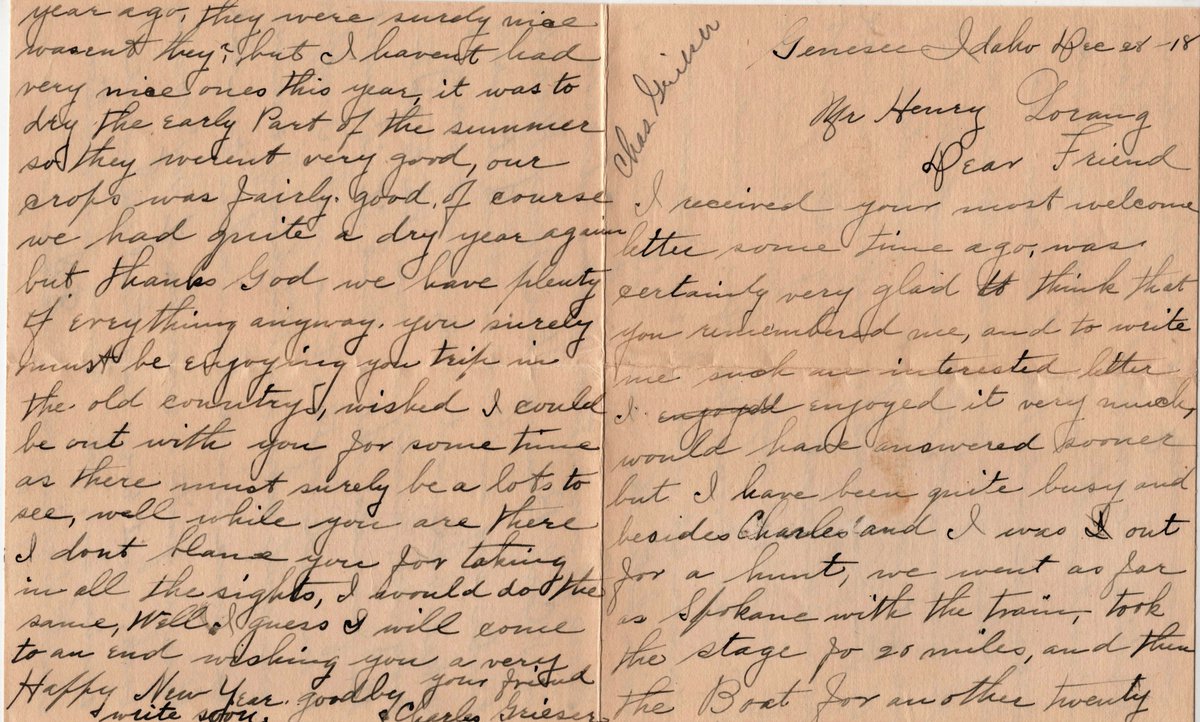 year ago, they were surely nice
wasent they? but I havent had
very nice ones this year, it was to
dry the early Part of the summer
so they werent very good, our
crops was fairly. good, of course
we had quite a dry year again
but thanks God we have plenty
of erything anyway. you surely
must be enjoying you trip in
the old country, wished I could
be out with you for some time
as there must surely be a lots to
see, well while you are there
I dont blame you for taking
in all the sights, I would do the
same, Well I guess I will come
to an end wishing you a very
Happy New Year. goodby your friend
write soon. Charles Grieser
Chas Grieser
Genesee Idaho Dec 28-18
Mr Henry Lorang
Dear Friend
I received your most welcome
letter some time ago, was
certainly very glad to think that
you remembered me, and to write
me such an interested letter
I enjoyed enjoyed it very much,
would have answered sooner
but I have been quite busy and
besides Charles and I was out
for a hunt, we went as far
as Spokane with the train, took
the stage fo 20 miles, and then
the Boat for another twenty